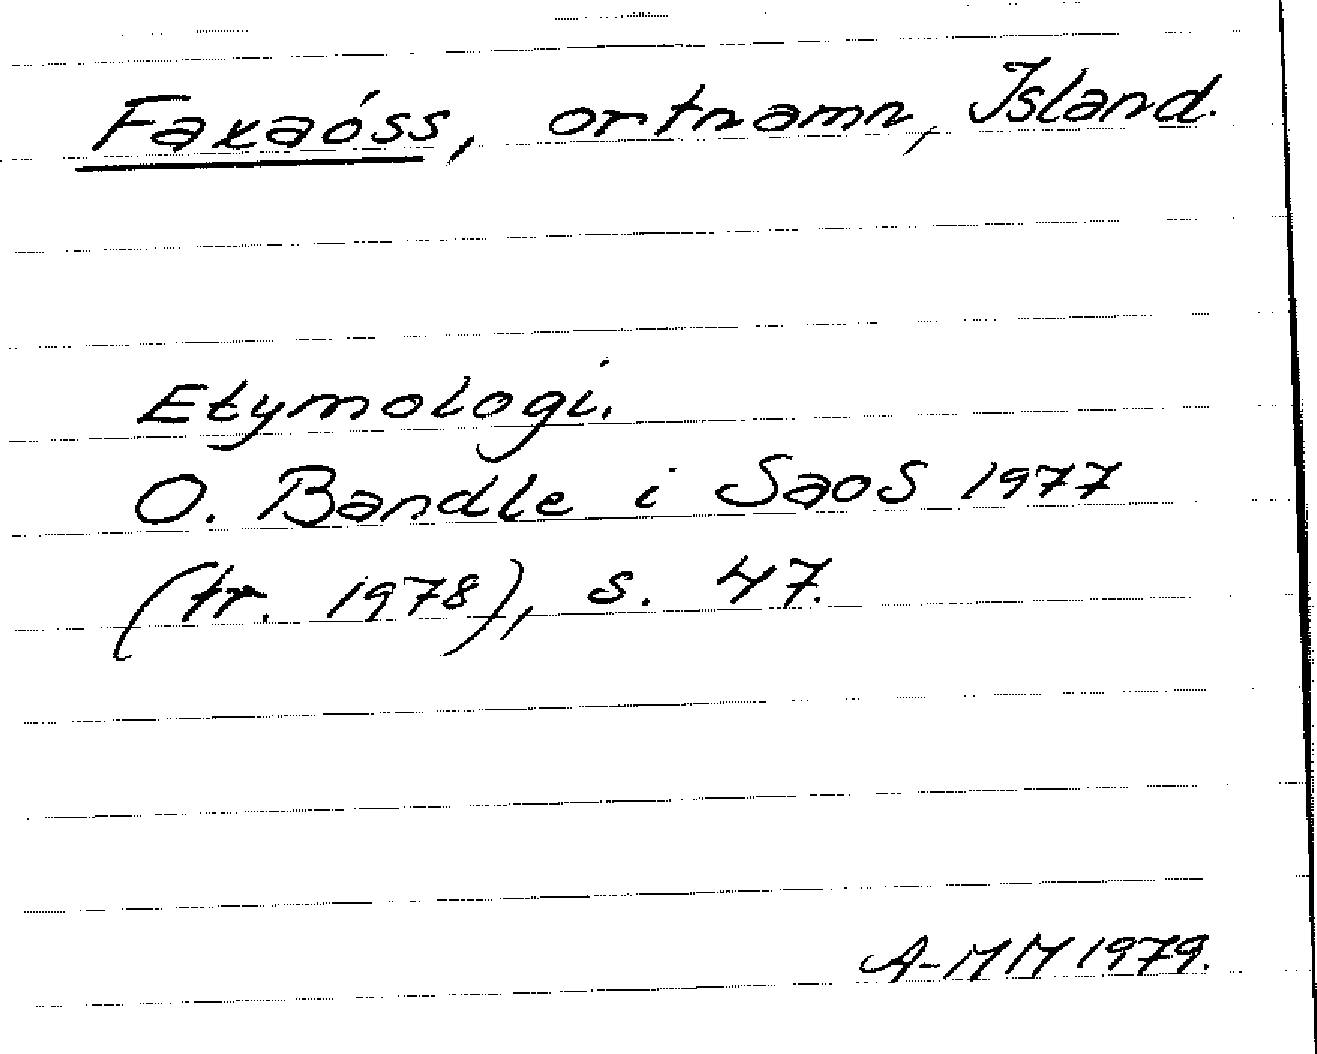 Faxaóss, ortnamn, Island.
Etymologi.
O. Bandle i SaoS 1977
(tr. 1978), s. 47.
A-MM 1979.